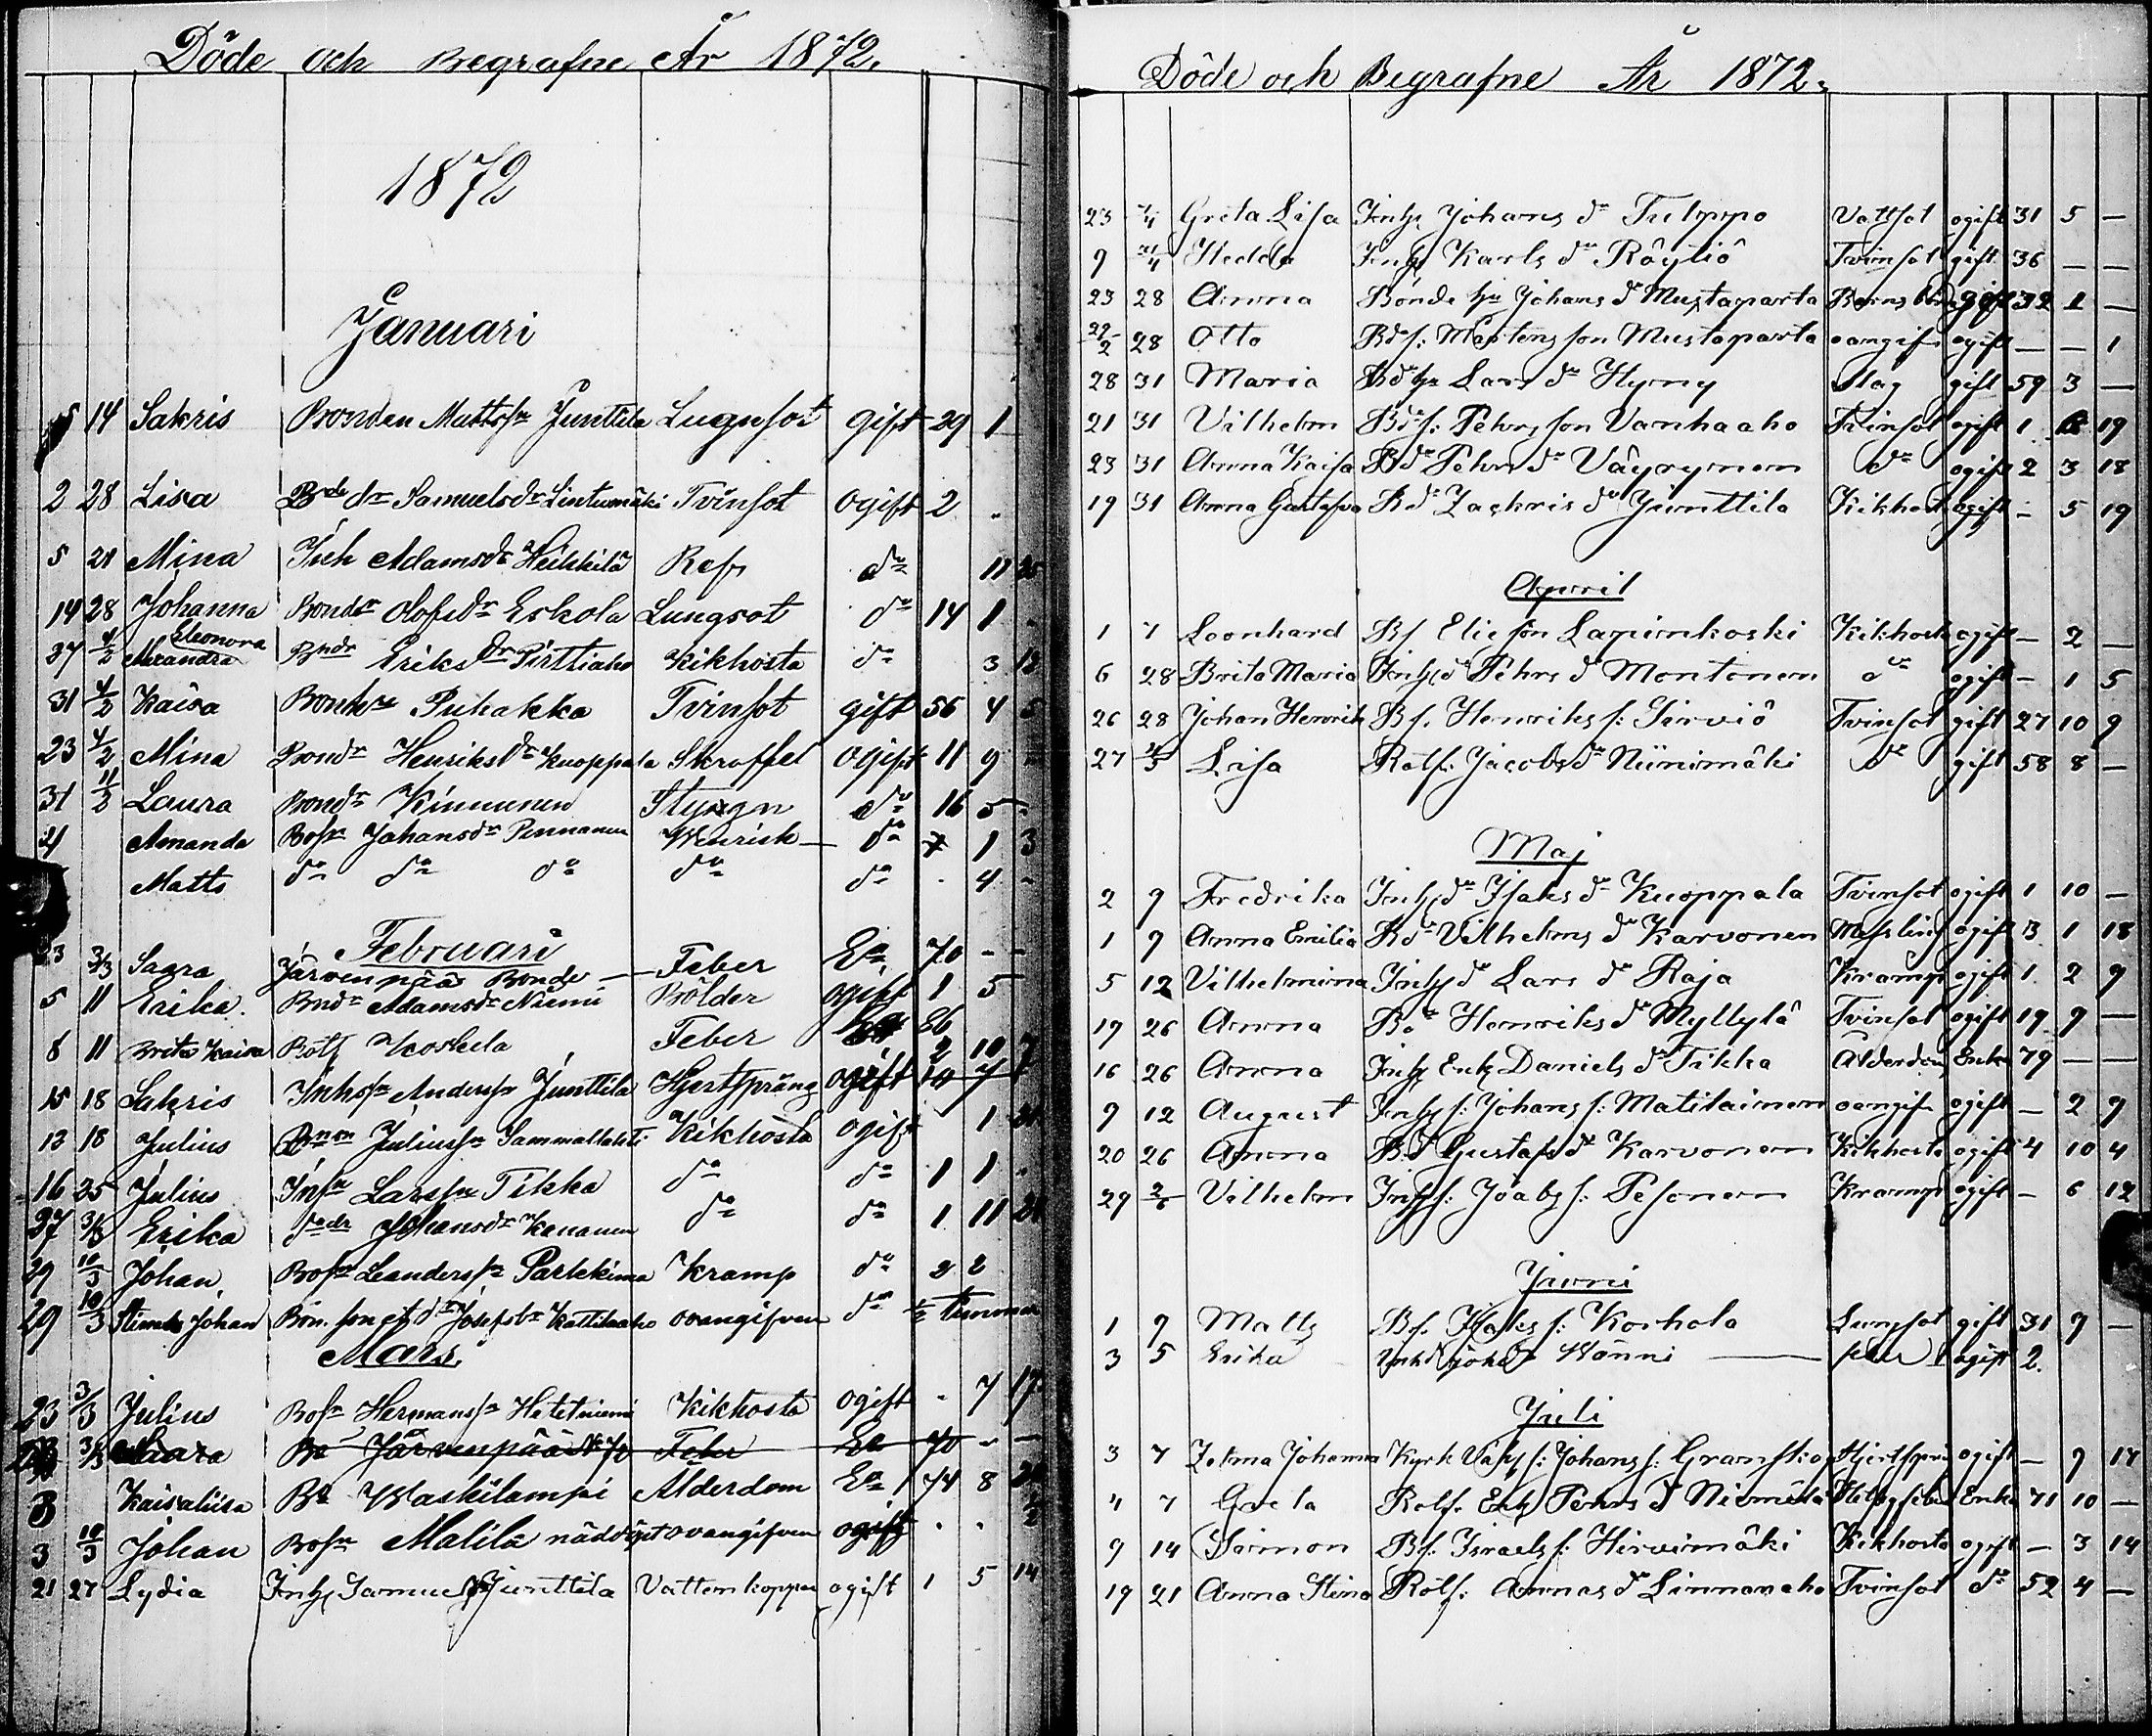 Döde och Begrafne År 1872.
1872
Januari
5 14 Sakris Bonden Mattssn Junttila Lugnsot gift 29 1
2 28 Lisa Bde dr Samuelsdr Lintumäki Tvinsot ogift 2
5 21 Mina Inh Adamsdr Heikkilä Ref do 11 25
14 28 Johanna Bondr Olofsdr Eskola Lungsot do 14 1
Eleonora
27 4/2 Alexandra Bndr Eriksdr Pirttiaho Kikhosta do 3 12
31 4/2 Kaisa Puhakka Tvinsot gift 56 4 5
23 4/2 Mina Bondr Henriksdr Kuoppala Skroffel ogift 11 9
31 11/2 Laura Bondr Kinnunen Styngn do 16 5
4 Amanda Bofn Johansdr Pennanen do 1 3
Matts do do do do do 4
Februari
23 3/3 Sagra Järvenpää Bonde Feber Ea 70 - -
5 11 Erika Bndr Adamsdr Niemi Bölder ogift 1 5
8 11 Brita Kaisa Rotf Koskela Feber 86
2 10 7
15 18 Sakris Inhsn Anderssn Junttila Hjertspräng ogift 14 7
12 18 Julius Juliussn Sammallahti Kikhosta ogift 1 21
16 25 Julius Insn Larssn Tikka do do 1 1
27 3/3 Erika Johansdr Kananen do do 1 11 21
29 10/3 Johan Bosn Leanderssn Parkkima Kramp do 2 2
29 10/3 Johan Bon. son af dr Josefsdr Kattilaaho oangifven do 1/2 timmar
Mars
23 3/3 Julius Bosn Hermanssn Hetetniemi Kikhosta ogift - 7 17
3/3 Saara Bo Järvenpää Feber Ea 70 - -
3 Kaisaliisa Bo Waskilampi Ålderdom Ea 74 8
3 10/3 Johan Bosn Malila nöddöpt oangifven ogift . . 1/2
21 27 Lydia Inhs Samuelsdr Junttila Vattenkoppor ogift 1 5 14
Döde och Begrafne År 1872.
23 1/4 Greta Lisa Inhs Johans dr Tulppo Vattsot ogift 31 5 —
9 21/4 Hedda Inhs Karls dr Röytiö Tvinsot gift 36 — —
23 28 Anna Bonde hu Johans dr Mustaparta Barnsbörd gift 32 1 —
29/2 28 Otto Bds: Mårtens son Mustaparta oangif ogift — — 1
28 31 Maria Bdhu Lars dr Hyrny slag gift 59 3 —
21 31 Vilhelm Bds: Pehrs son Vanhaaho Tvinsot ogift 1 19
23 31 Anna Kaisa Bdr Pehrs dr Väyrynen do ogift 2 3 18
19 31 Anna Gustafva Bdr Zachris dr Junttila Kikhost ogift - 5 19
April
1 7 Leonhard Bs Elie son Lapinkoski Kikhosta ogift — 2 —
6 28 Brita Maria Inhs dr Pehrs dr Montonen do ogift - 1 5
26 28 Johan Henrik Bs. Henriks s: Sirviö Tvinsot gift 27 10 9
27 4/5 Lisa Rotf: Jacobs dr Niinimäki do gift 58 8 —
Maj
2 9 Fredrika Inhs dr Isaks dr Kuoppala Tvinsot ogift 1 10 —
1 9 Anna Emilia Bdr Vilhelms dr Karvonen Messling ogift 3 1 18
5 12 Vilhelmina Inhs dr Lars dr Raja Kramp ogift 1 2 9
19 26 Anna Bdr Henriks dr Myllylä Tvinsot ogift 19 9 —
16 26 Anna Inhs Enk Daniels dr Tikka Ålderdom Enka 79 — —
9 12 August Inhs s: Johans s: Matilainen oangif ogift — 2 9
20 26 Anna Bd Gustafs dr Karvonen Kikhosta ogift 4 10 4
29 2/6 Vilhelm Inhs s: Joabs s: Pesonen Kramp ogift — 6 12
Juni
1 9 Matts Bs. Isaks s: Korhola Lungsot gift 31 9 —
3 5 Erika Inhdr Johdr Wänni — feber ogift 2.
Juli
3 7 Zelma Johanna Kyrk Väkt s: Johans s: Granskog Hjertspräng ogift — 9 17
4 7 Greta Rotf. Enk Pehrs dr Niemelä Enka 71 10 —
9 14 Simon Bs: Israels s: Hirvimäki Kikhosta ogift — 3 14
19 21 Anna Stina Rotf: Annas dr Linnanaho Tvinsot do 52 4 —